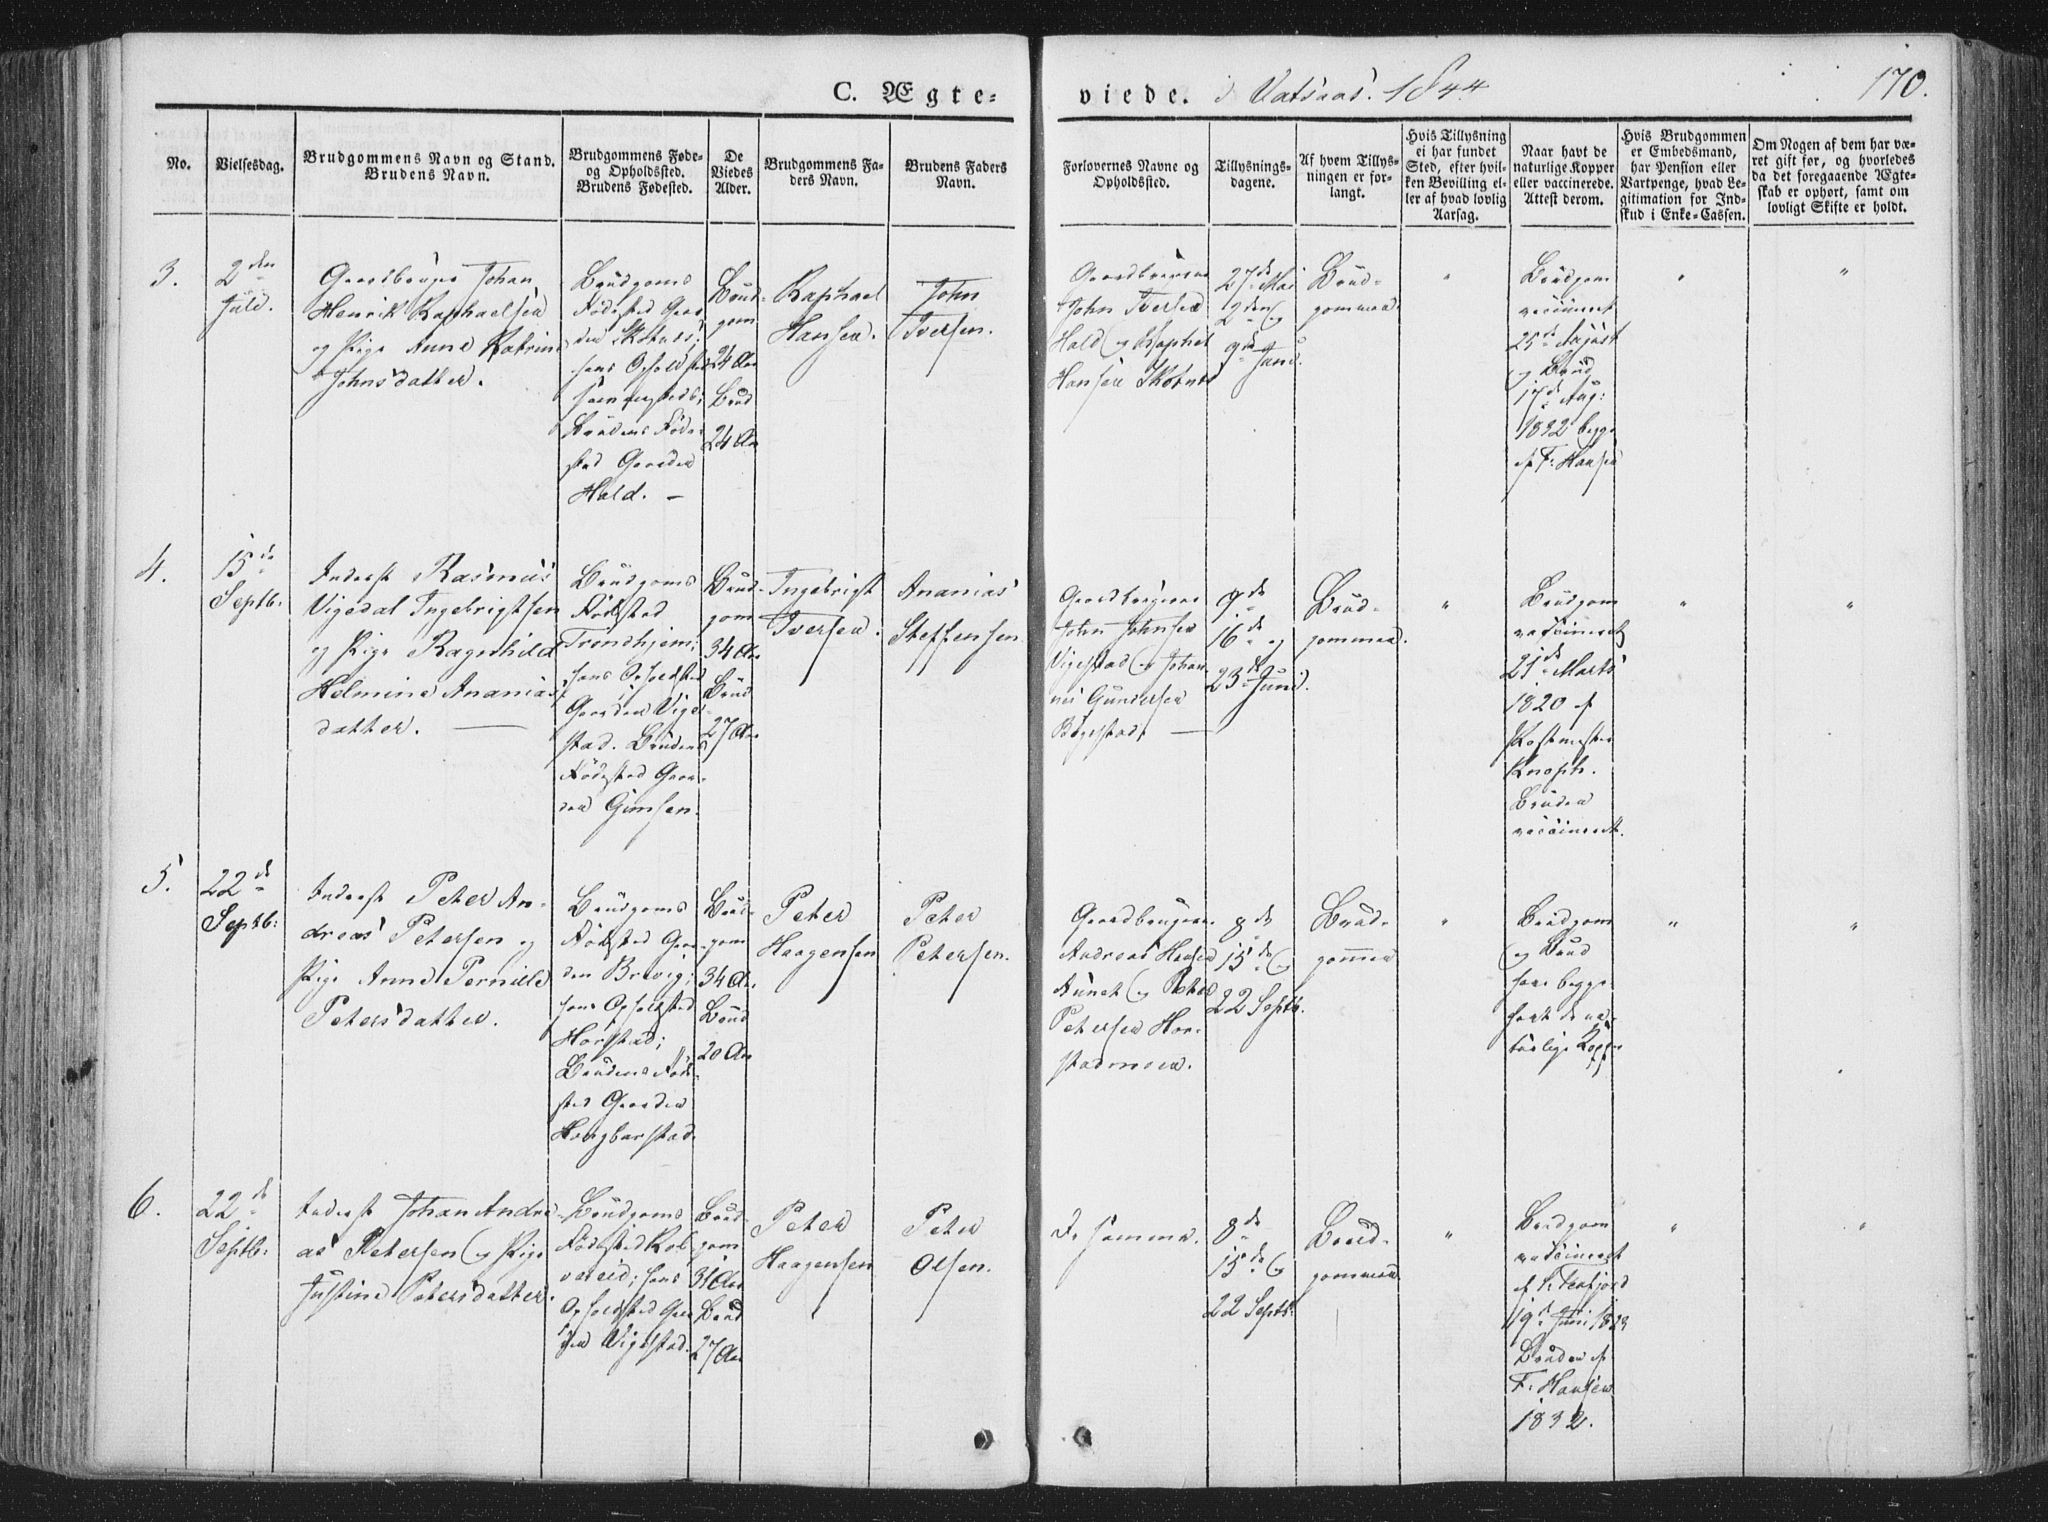 C. Ægte-
viede. i Vatsaas. 1844
170.
No.
Vielsesdag.
Brudgommens Navn og Stand.
Brudens Navn.
Brudgommens Føde-
og Opholdssted.
Brudens Fødested.
De
Viedes
Alder.
Brudgommens Fa-
ders Navn.
Brudens Faders
Navn.
Forlovernes Navne og
Opholdssted.
Tillysnings-
dagene.
Af hvem Tillys-
ningen er for-
langt.
Hvis Tillysning
ei har fundet
Sted, efter hvil-
ken Bevilling el-
ler af hvad lovlig
Aarsag.
Naar havt de
naturlige Kopper
eller vaccinerede.
Attest derom.
Hvis Brudgommen
er Embedsmand,
har Pension eller
Vartpenge, hvad Le-
gitimation for Ind-
skud i Enke-Cassen.
Om Nogen af dem har væ-
ret gift før, og hvorledes
da det foregaaende Ægte-
skab er ophørt, samt om
lovligt Skifte er holdt.
3.
2den
Juli.
Gaardbruger Johan
Henrik Raphaelsen
og Pige Anne Katrine
Johnsdatter.
Brudgoms
Fødested Gaar-
den Skotnes;
hans Opholdsted
sammesteds;
Brudens Føde-
sted Gaarden
Hald. —
Brud-
gom
24 Aar
Brud
24 Aar
Raphael
Hansen.
John
Iversen.
Gaardbrugerne
John Iversen
Hald og Raphel
Hansen Skotnes
27de Mai
2den og
9de Juni.
Brud-
gommen.
"
Brudgom
vaccineret
25de August
og Brud
17de Aug:
1832 begge
af F: Hansen
"
"
4.
15de
Septb:
Inderst Rasmus
Vigedal Ingebrigtsen
og Pige Ragnhild
Helmine Ananias
datter. —
Brudgoms
Fødested
Trondhjem;
hans Opholdsted
Gaarden Vige-
stad. Brudens
Fødested Gaar-
den Gimsen.
Brud-
gom
34 Aar
Brud
27 Aar
Ingebrigt
Iversen.
Ananias
Steffensen
Gaardbrugerne
John Johnsen
Vigestad og Johan-
nes Gundersen
Bøgestad. —
9de
16de og
23de Juni.
Brud-
gommen.
"
Brudgom
vaccineret
21de Marts
1820 af
Postmester
Knoph.
Bruden
vaccineret.
"
"
5.
22de
Septb:
Inderst Peter An-
dreas Petersen og
Pige Anne Pernille
Petersdatter.
Brudgoms
Fødested Gaar-
den Brevig;
hans Opholdsted
Horstad;
Brudens Føde-
sted Gaarden
Brud-
gom
34 Aar.
Brud
20 Aar
Peter
Haagensen
Peter
Petersen.
Gaardbrugerne
Andreas Hansen
Aunet og Peter
Petersen Hor-
stadmoen.
8de
15de og
22 Septb.
Brud-
gommen
"
Brudgom
og Brud
have begge
havt de na-
turlige Kopper
"
"
6.
22de
Septb:
Inderst Johan Andre-
as Petersen og Pige
Justine Petersdatter.
Brudgoms
Fødested Kol-
vereid; hans
Opholdsted Gaar-
den Vigestad.
Brud-
gom
31 Aar
Brud
27 Aar
Peter
Haagensen
Peter
Olsen.
De samme.
8de
15de og
22 Septb:
Brud-
gommen
"
Brudgom
vaccineret
19de Juni
Bruden af
F: Hansen
1832.
"
"